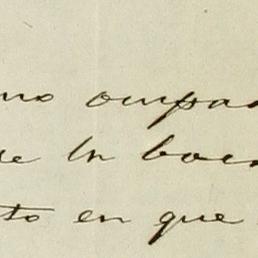 no ocupa
de la bue
to en que